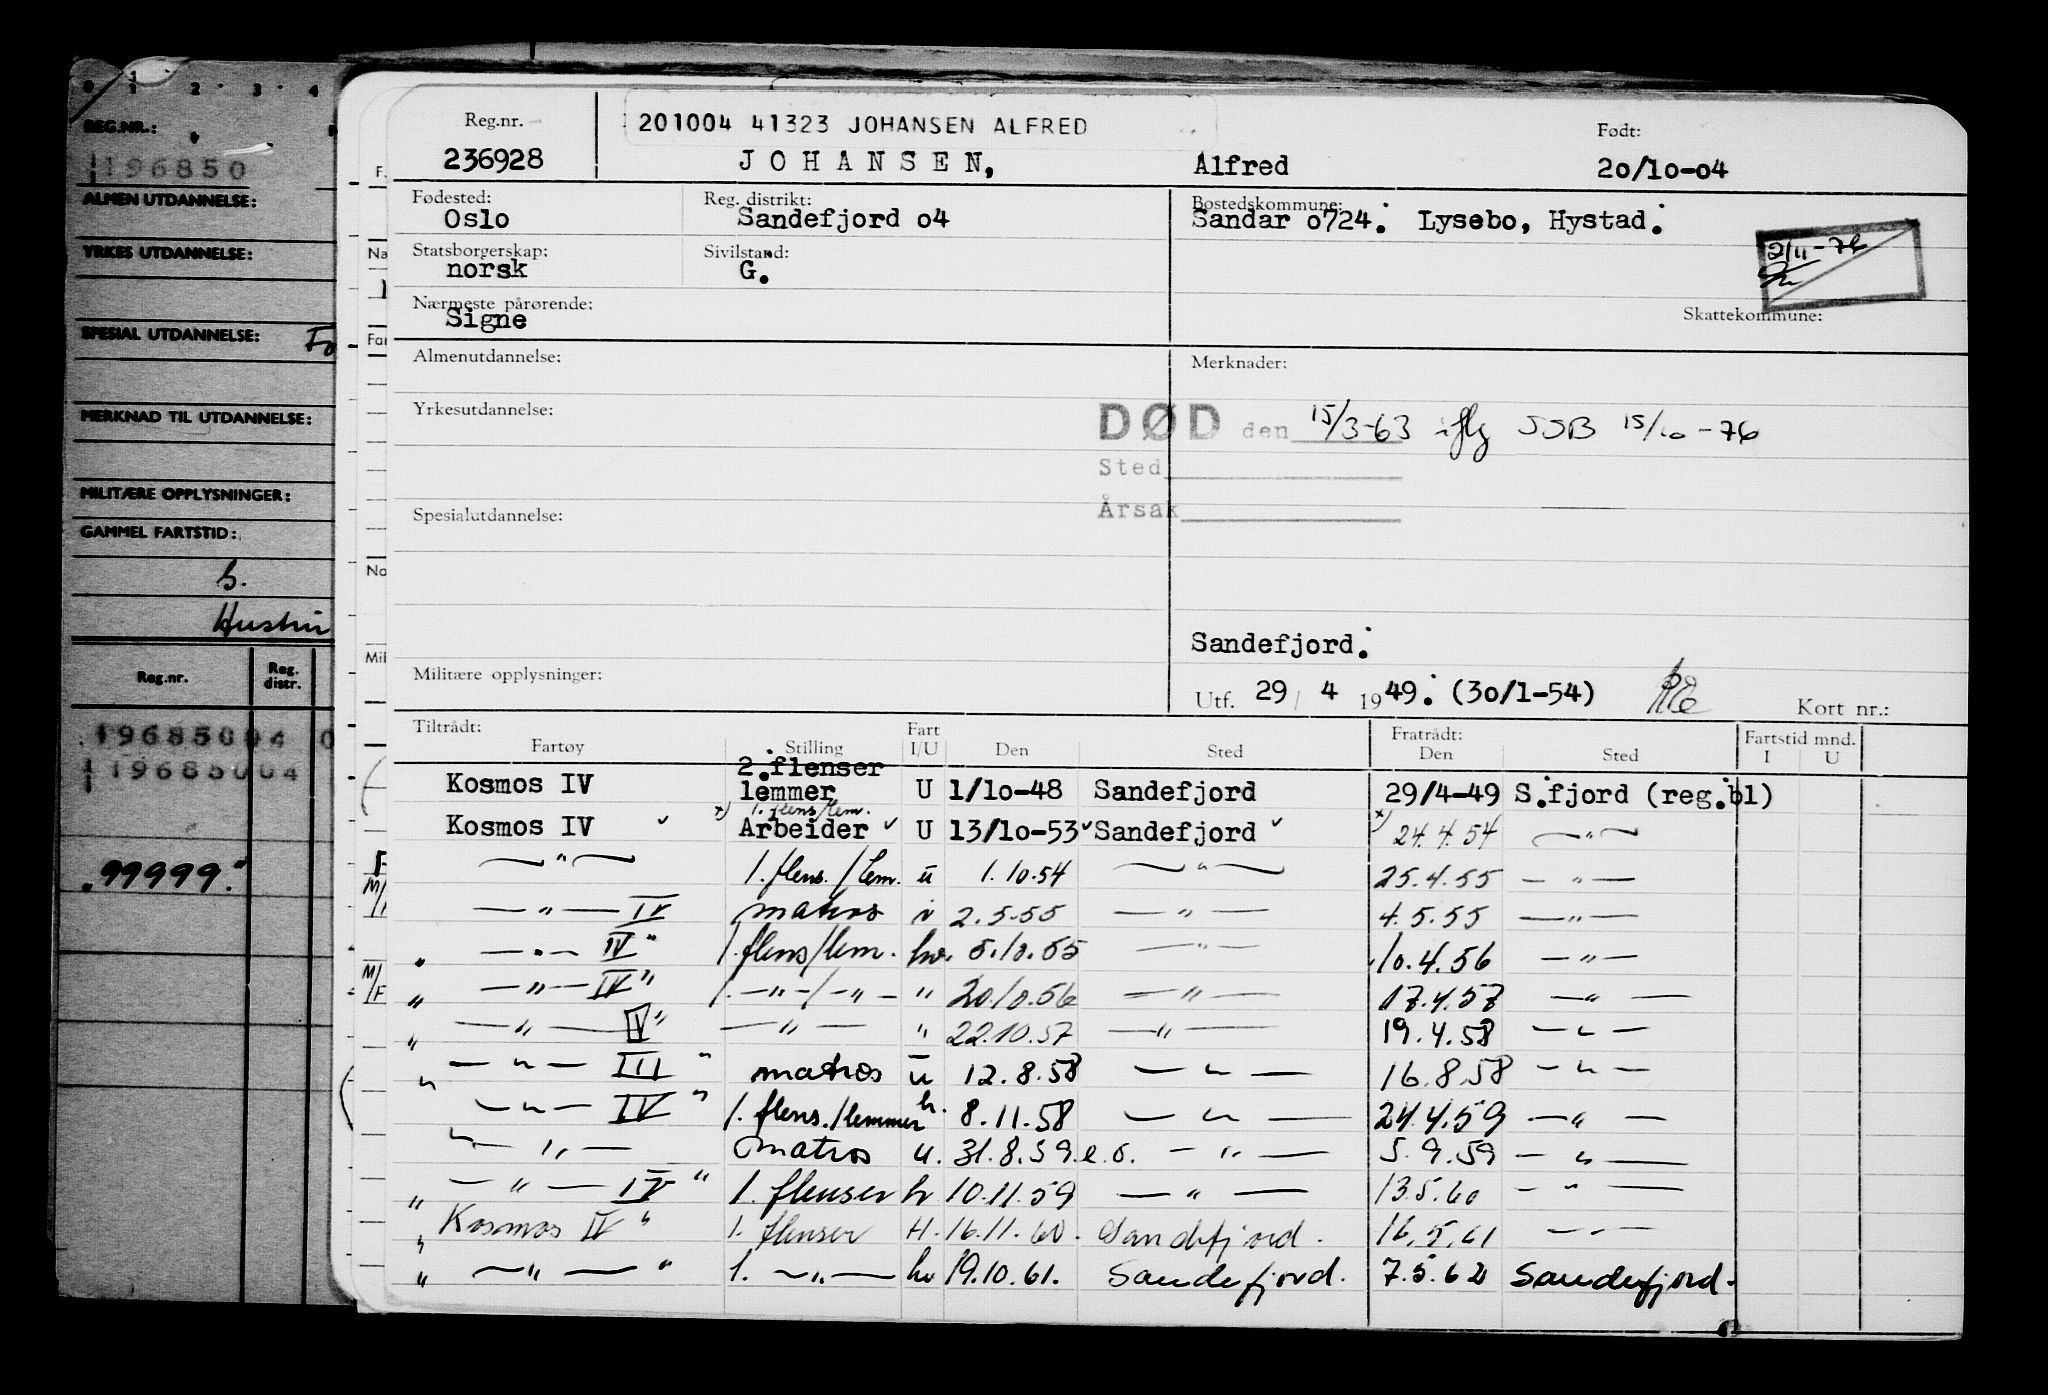 0 1 2 3 4
REG.NR.:
196850
ALMEN UTDANNELSE:
YRKES UTDANNELSE:
SPESIAL UTDANNELSE: Fo
MERKNAD TIL UTDANNELSE:
MILITÆRE OPPLYSNINGER:
GAMMEL FARTSTID:
S.
Hustru
Reg.nr. Reg. distr.
19685004 0
19685004
"99999."
Reg.nr. 201004 41323 JOHANSEN ALFRED Født:
236928 JOHANSEN, Alfred 20/10-04
Fødested: Reg. distrikt: Bostedskommune:
Oslo Sandefjord 04 Sandar 0724. Lysebo, Hystad.
Statsborgerskap: Sivilstand: 2/11-76
norsk G.
Nærmeste pårørende: Skattekommune:
Signe
Almenutdannelse: Merknader:
Yrkesutdannelse: DØD den 15/3-63 iflg SSB 15/10-76
Sted
Årsak
Spesialutdannelse:
Sandefjord.
Militære opplysninger: Utf. 29/4 1949. (30/1-54) Kort nr.:
Tiltrådt: Fart Fratrådt: Fartstid mnd.
Fartøy Stilling I/U Den Sted Den Sted I U
2.flenser
Kosmos IV lemmer U 1/10-48 Sandefjord 29/4-49 S.fjord (reg.bl)
x) 1. flens/lem.
Kosmos IV Arbeider U 13/10-53 Sandefjord x) 24.4.54 — " —
— " — 1. flens./lem. u 1.10.54 — " — 25.4.55 — " —
— " — IV matros i 2.5.55 — " — 4.5.55 — " —
" — " — IV " 1. flens/lem. hv. 5.10.55 — " — 10.4.56 — " —
" — " — IV " 1. — " — / — " — " 20.10.56 — " — 17.4.57 — " —
" — " — V " — " — " 22.10.57 — " — 19.4.58 — " —
" — " — III " matros u 12.8.58 — " — 16.8.58 — " —
— " — IV " 1. flens./lemmer h. 8.11.58 — " — 24.4.59 — " —
" — " — matros u. 31.8.59. e.o. — " — 5.9.59 — " —
" — " — IV " 1. flenser h 10.11.59 — " — 13.5.60 — " —
" Kosmos IV " 1. flenser H. 16.11.60. Sandefjord. 16.5.61 — " —
" — " — " 1. — " — hv 19.10.61. Sandefjord. 7.5.62 Sandefjord.